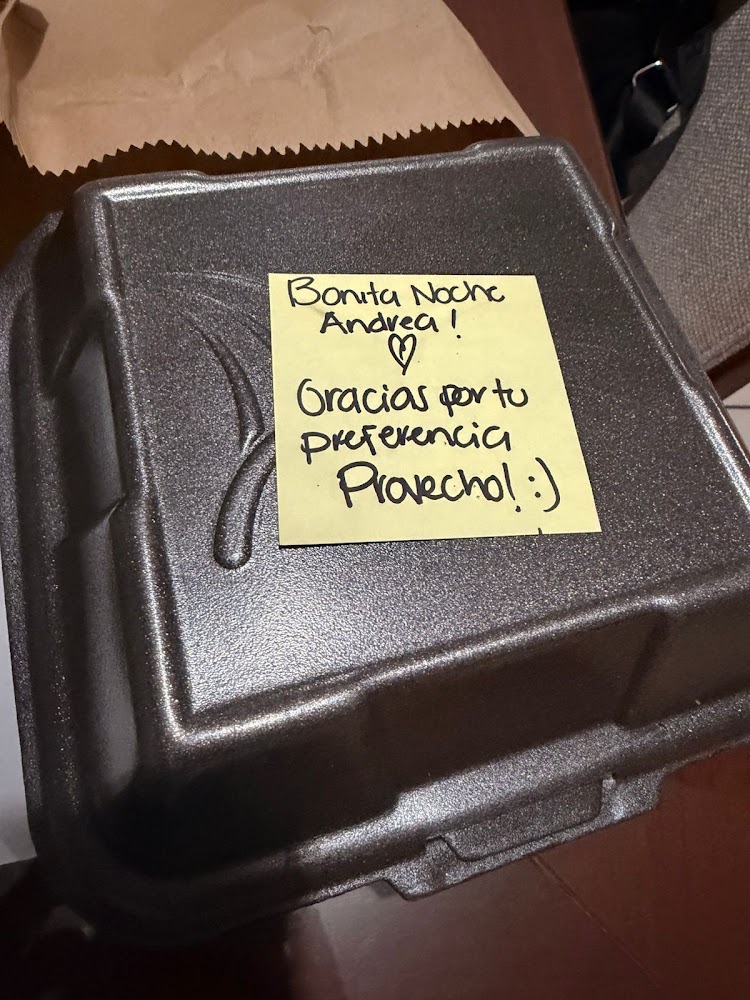 Bonita Noche
Andrea!
♡
Gracias por tu
preferencia
Provecho! :)